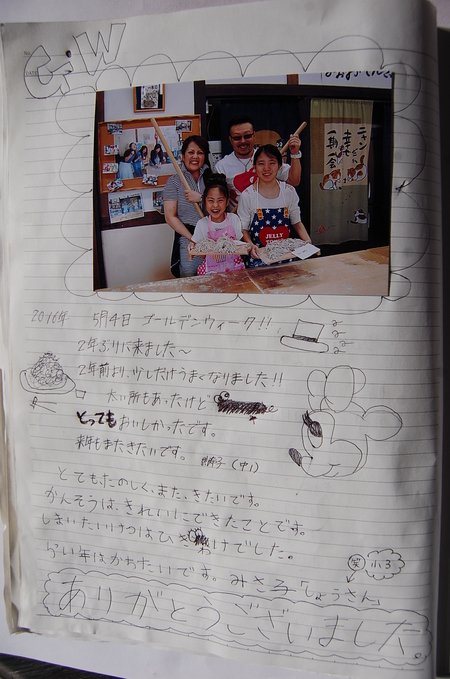 G.W
ニャンだか
幸せ
一期一会
JELLY
2016年 5月4日 ゴールデンウィーク!!
2年ぶりに来ました〜
2年前より、少しだけうまくなりました!!
太い所もあったけど
とってもおいしかったです。
来年もまたきたいです。 (中1)
とてもたのしく、また、きたいです。
かんそうは、きれいにできたことです。
しまいたいけつはひきわけでした。
らい年はかちたいです。みさ
笑 小3
ありがとうございました。